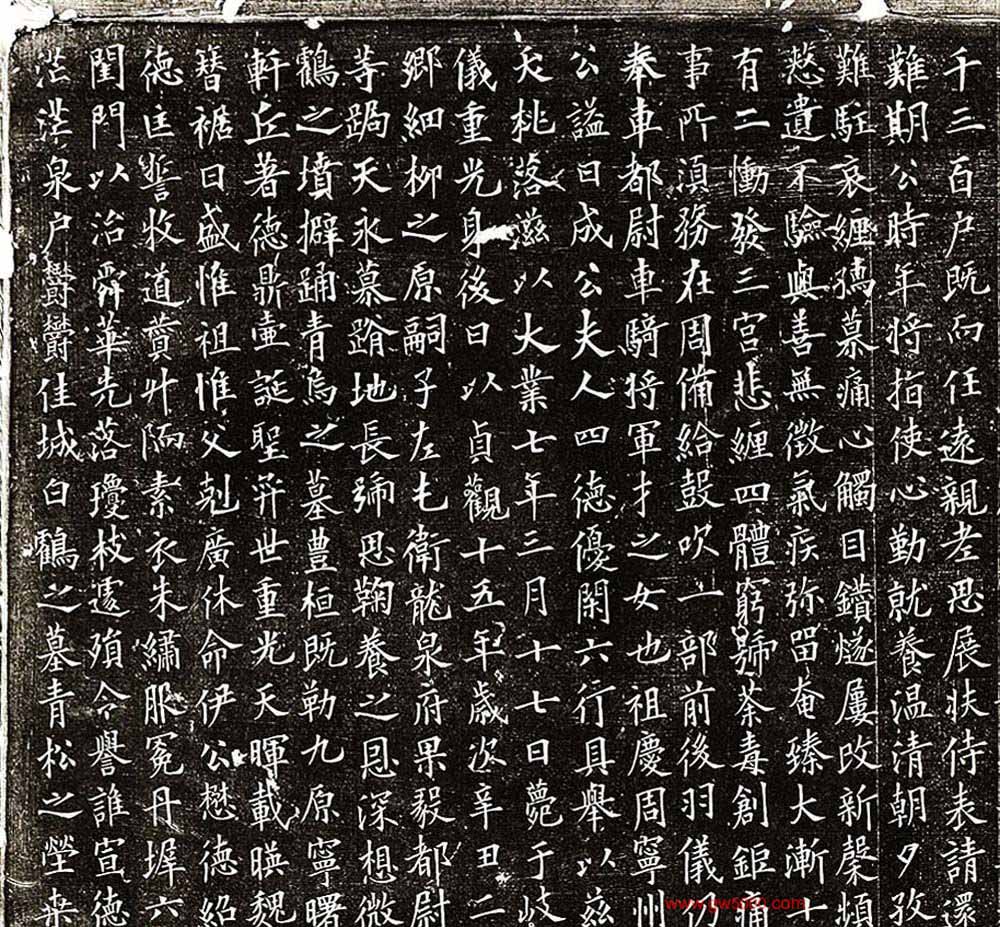 千三百户既而任遠親老思展扶侍表請還
難期公時年将指使心勤就養温清朝夕孜
難駐哀纏孺慕痛心觸目鑚燧屢改新馨頻
憗遺不驗與善無徵氣疾弥留奄臻大漸十
有二慟發三宫悲纏四體窮號荼毒創鉅痛
事所湏務在周備給鼓吹一部前後羽儀仍
奉車都尉車騎将軍才之女也祖慶周寧州
公謚曰成公夫人四德優閑六行具舉以兹
夭桃落滋以大業七年三月十七日薨于岐
儀重光身後曰以貞觀十五年歲次辛丑二
鄉細柳之原嗣子左屯衛龍泉府果毅都尉
等跼天永慕蹐地長號思鞠養之恩深想微
鶴之墳擗踊青烏之墓豊桓既勒九原寧曙
軒丘著德鼎壷誕聖弈世重光天暉載暎魏
簪裾日盛惟祖惟父剋廣休命伊公懋德紹
德匡誓收道賁升陑素衣朱繡服冕丹墀六
閨門以治舜華先落瓊枝遽殞令譽誰宣德
茫茫泉户欝欝佳城白鶴之墓青松之塋来
www.yw5000.com